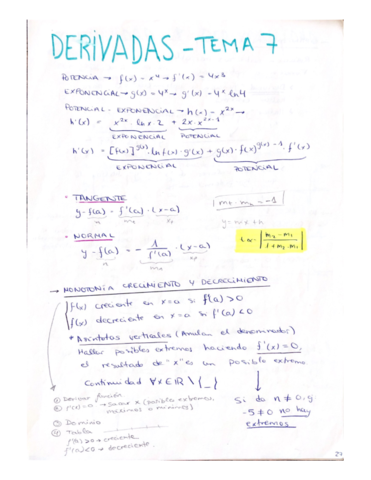 DERIVADAS - TEMA 7
POTENCIA → f(x) - x⁴ → f'(x) = 4x³
EXPONENCIAL → g(x) = 4ˣ → g'(x) - 4ˣ ln 4
POTENCIAL - EXPONENCIAL → h(x) - x²ˣ →
h'(x) = x²ˣ · ln x · 2 + 2x · x²ˣ⁻¹
EXPONENCIAL POTENCIAL
h'(x) = [f(x)]^g(x) · ln f(x) · g'(x) + g(x) · f(x)^g(x)-1 · f'(x)
EXPONENCIAL POTENCIAL
• TANGENTE
m₁ · m₂ = -1
y - f(a) = f'(a) · (x-a)
y = mx + n
• NORMAL
y - f(a) = - 1/f'(a) · (x-a)
m₂ - m₁ / 1 + m₂ · m₁
→ MONOTONÍA CRECIMIENTO Y DECRECIMIENTO
f(x) creciente en x=a si f(a) > 0
f(x) decreciente en x=a si f'(a) < 0
* Asíntotas verticales (Anulan el denominador)
Hallar posibles extremos haciendo f'(x) = 0,
el resultado de "x" es un posible extremo
Continuidad ∀x∈ℝ \ {_}
① Derivar función
② f'(x) = 0 → Sacar x (posibles extremos, maximos o minimos)
③ Dominio
④ Tabla
f'(x) > 0 → creciente
f'(x) < 0 → decreciente
Si da n ≠ 0, ej
-5 ≠ 0 no hay
extremos